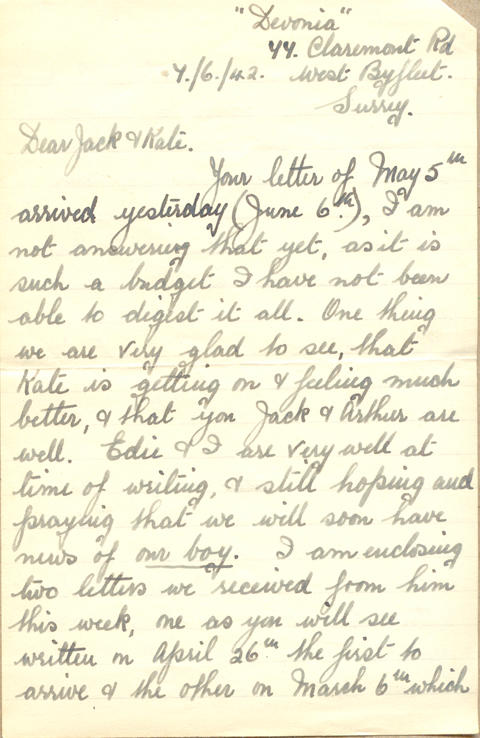 "Devonia"
44. Claremont Rd
7/6/42. West Byfleet.
Surrey.
Dear Jack & Kate.
Your letter of May 5th
arrived yesterday (June 6th), I am
not answering that yet, as it is
such a budget I have not been
able to digest it all. One thing
we are very glad to see, that
Kate is getting on & feeling much
better, & that you Jack & Arthur are
well. Edie & I are very well at
time of writing, & still hoping and
praying that we will soon have
news of our boy. I am enclosing
two letters we received from him
this week, one as you will see
written on April 26th the first to
arrive & the other on March 6th which